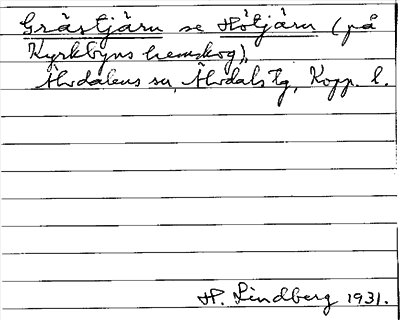 Grästjärn se Hötjärn (på
Kyrkbyns hemskog),
Älvdalens sn, Älvdals tg, Kopp. l.
H. Lindberg 1931.